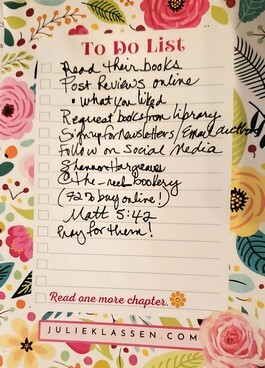 To Do List
Read their books
Post Reviews online
• what you liked
Request books from library
Sign up for Newsletters/Email authors
Follow on Social Media
Shannon Hargreaves
@The_reel bookery
(92% buy online!)
Matt 5:42
Pray for them!
Read one more chapter.
JULIEKLASSEN.COM